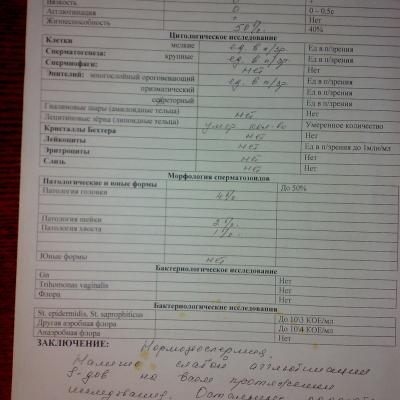 Вязкость 0 +
Агглютинация 0 0 – 0.5с
Жизнеспособность + Нет
50% 40%
Цитологическое исследование
Клетки мелкие ед. в п/зр. Ед в п/зрения
Сперматогенеза: крупные ед. в п/зр Ед в п/зрения
Спермофаги: нет Нет
Эпителий: многослойный ороговевающий ед. в п/зр Ед в п/зрения
призматический Ед в п/зрения
секреторный Ед в п/зрения
Гиалиновые шары (амилоидные тельца) нет Нет
Лецитиновые зёрна (липоидные тельца) умер кол-во Умеренное количество
Кристаллы Бехтера нет Нет
Лейкоциты нет Ед в п/зрения до 1млн/мл
Эритроциты нет Нет
Слизь нет Нет
Морфология сперматозоидов
Патологические и юные формы До 50%
Патология головки 4%
Патология шейки 2%.
Патология хвоста 1%.
Юные формы нет Нет
Бактериологическое исследование
Gn Нет
Trihomonas vaginalis Нет
Флора Нет
Бактериологические исследования
St. epidermidis, St. saprophiticus До 10\3 КОЕ/мл
Другая аэробная флора До 10\4 КОЕ/мл
Анаэробная флора Нет
ЗАКЛЮЧЕНИЕ: Нормозооспермия.
Наличие слабой агглютинации
на всем протяжении
исследования.